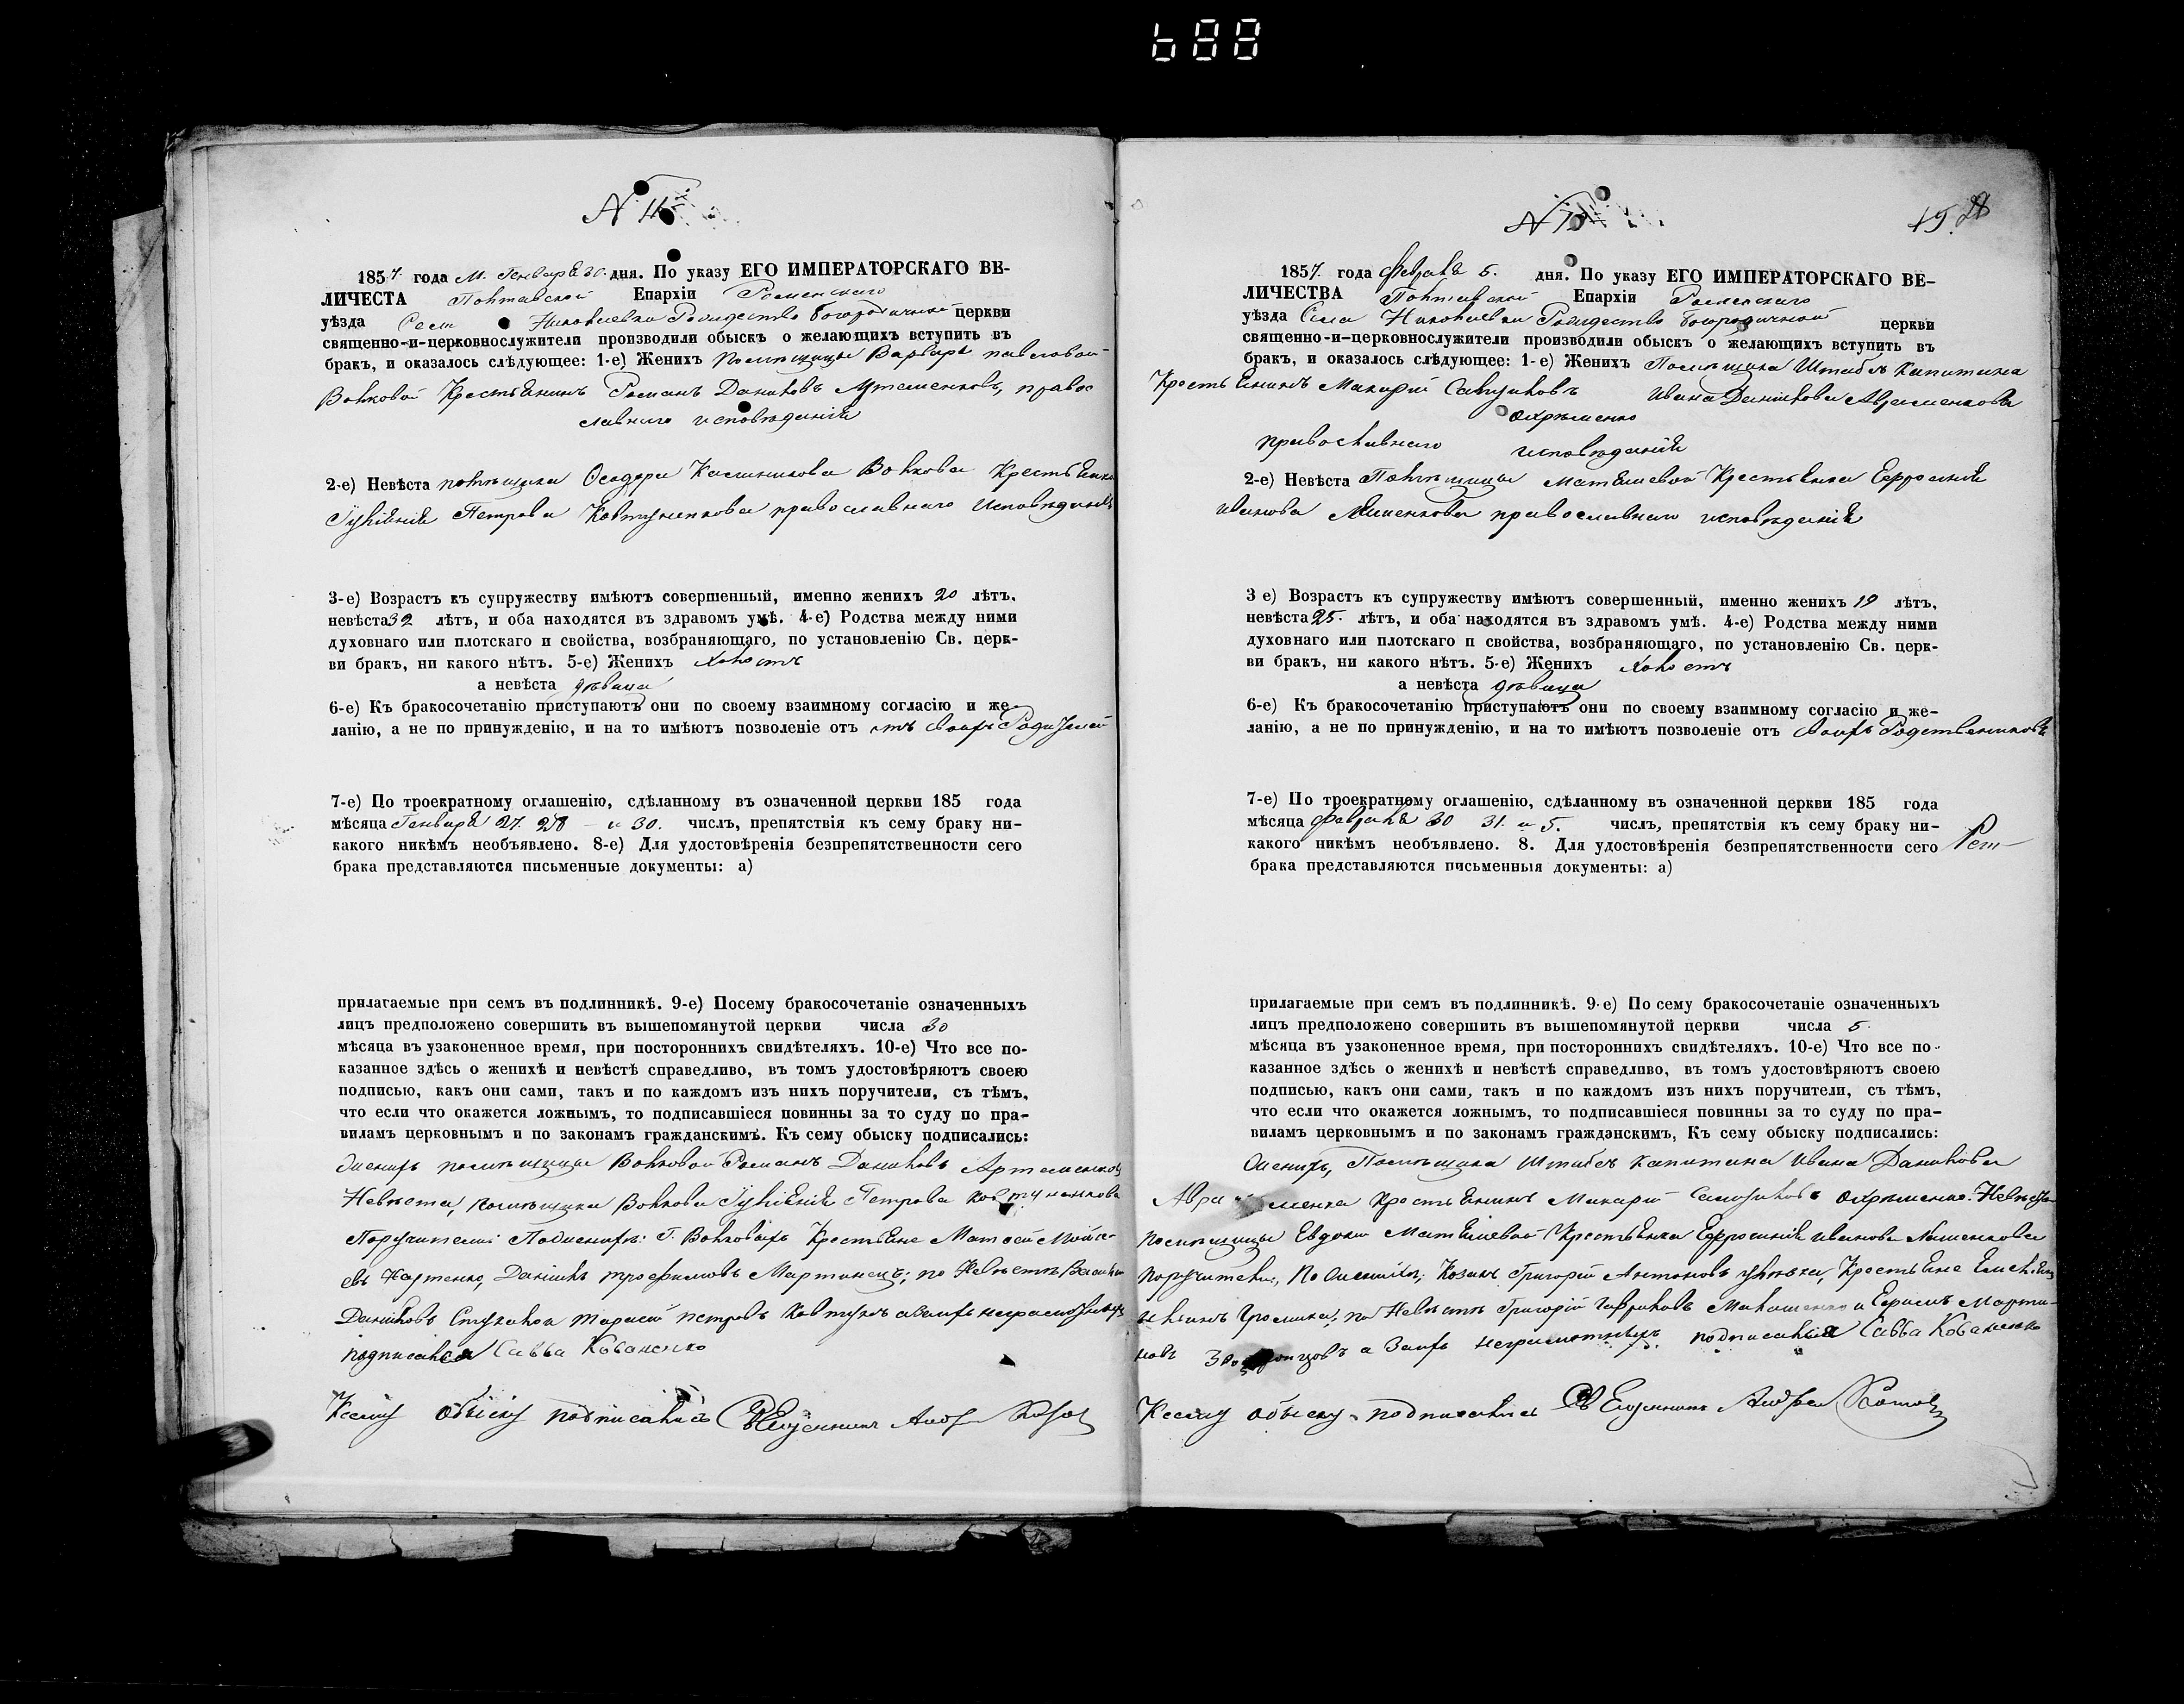 688
N
1857 года М. Генваря 30. дня. По указу ЕГО ИМПЕРАТОРСКАГО ВЕ-
ЛИЧЕСТА Полтавской Епархіи Роменскаго
уѣзда Села Николаевки Рождество Богородичной церкви
священно-и-церковнослужители производили обыскъ о желающихъ вступить въ
бракъ, и оказалось слѣдующее: 1-е) Женихъ помѣщицы Варвары Павловой
Волковой Крестьянинъ Романъ Даниловъ Артеменковъ, православнаго исповѣданія
2-е) Невѣста помѣщика Феодора Волкова Крестьянка
Іуліянія Петрова Ковтуненкова православнаго исповѣданія
3-е) Возрастъ къ супружеству имѣютъ совершенный, именно женихъ 20 лѣтъ,
невѣста 32 лѣтъ, и оба находятся въ здравомъ умѣ. 4-е) Родства между ними
духовнаго или плотскаго и свойства, возбраняющаго, по установленію Св. церк-
ви бракъ, ни какого нѣтъ. 5-е) Женихъ холостъ
а невѣста дѣвица
6-е) Къ бракосочетанію приступаютъ они по своему взаимному согласію и же-
ланію, а не по принужденію, и на то имѣютъ позволеніе отъ отъ своихъ Родителей
7-е) По троекратному оглашенію, сдѣланному въ означенной церкви 185 года
мѣсяца Генваря 27. 28 и 30. числъ, препятствія къ сему браку ни-
какого никѣмъ необъявлено. 8-е) Для удостовѣренія безпрепятственности сего
брака представляются письменные документы: а)
прилагаемые при семъ въ подлинникѣ. 9-е) Посему бракосочетаніе означенныхъ
лицъ предположено совершить въ вышепомянутой церкви числа 30
мѣсяца въ узаконенное время, при постороннихъ свидѣтеляхъ. 10-е) Что все по-
казанное здѣсь о женихѣ и невѣстѣ справедливо, въ томъ удостовѣряютъ своею
подписью, какъ они сами, такъ и по каждомъ изъ нихъ поручители, съ тѣмъ,
что если что окажется ложнымъ, то подписавшіеся повинны за то суду по пра-
виламъ церковнымъ и по законамъ гражданскимъ. Къ сему обыску подписались:
Женихъ помѣщицы Волковой Романъ Даниловъ Артеменковъ
Невѣста, помѣщика Волкова Іуліянія Петрова Ковтуненкова
Поручители: По женихѣ: Г. Волковыхъ Крестьяне Матвей
Картенко, Даніилъ Трофимовъ Мартинецъ; по Невѣстѣ
Даніиловъ Тарасій Петровъ Ковтунъ
подписался Савва Коваленко
Ксему обыску подписались Священникъ
N
19. 28
1857. года Февраля 5. дня. По указу ЕГО ИМПЕРАТОРСКАГО ВЕ-
ЛИЧЕСТВА Полтавской Епархіи Роменскаго
уѣзда Села Николаевки Рождество Богородичной церкви
священно-и-церковнослужители производили обыскъ о желающихъ вступить въ
бракъ, и оказалось слѣдующее: 1-е) Женихъ Помѣщика Штабсъ капитана
Крестьянинъ Макарій Ивана Данилова Авраменкова
Охрѣменко
православнаго исповѣданія
2-е) Невѣста Помѣщицы Крестьянка Ефросинія
Иванова православнаго исповѣданія
3 е) Возрастъ къ супружеству имѣютъ совершенный, именно женихъ 19 лѣтъ,
невѣста 25. лѣтъ, и оба находятся въ здравомъ умѣ. 4-е) Родства между ними
духовнаго или плотскаго п свойства, возбраняющаго, по установленію Св. церк-
ви бракъ, ни какого нѣтъ. 5-е) Женихъ холостъ
а невѣста дѣвица
6-е) Къ бракосочетанію приступаютъ они по своему взаимному согласію и же-
ланію, а не по принужденію, и на то имѣютъ позволеніе отъ своихъ Родственниковъ
7-е) По троекратному оглашенію, сдѣланному въ означенной церкви 185 года
мѣсяца Февраля 30 31. и 5. числъ, препятствія къ сему браку ни-
какого никѣмъ необъявлено. 8. Для удостовѣренія безпрепятственности сего
брака представляются письменныя документы: а)
прилагаемые при семъ въ подлинникѣ. 9-е) По сему бракосочетаніе означенныхъ
лицъ предположено совершить въ вышепомянутой церкви числа 5.
мѣсяца въ узаконенное время, при постороннихъ свидѣтеляхъ. 10-е) Что все по-
казанное здѣсь о женихѣ и невѣстѣ справедливо, въ томъ удостовѣряютъ своею
подписью, какъ они сами, такъ и по каждомъ изъ нихъ поручители, съ тѣмъ,
что если что окажется ложнымъ, то подписавшіеся повинны за то суду по пра-
виламъ церковнымъ и по законамъ гражданскимъ, Къ сему обыску подписались:
Женихъ, Помѣщика Штабсъ капитана Ивана Данилова
крестьянинъ Макарій Охрѣменко. Невѣста
помѣщицы Евдокіи Крестьянка Ефросинія Иванова
поручители, По женихѣ; Козакъ Григорій Антоновъ Крестьяне
по Невѣстѣ Григорій Гавриловъ и Герасимъ Марти-
новъ а за ихъ неграмотныхъ подписался Савва Коваленко
Ксему обыску подписались Священникъ Андрей